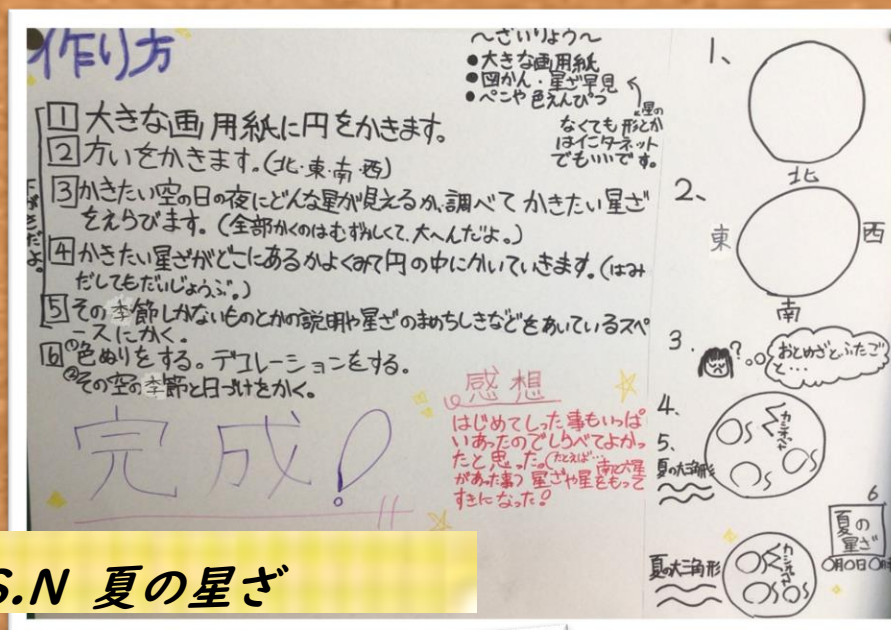 作り方
～ざいりょう～
●大きな画用紙
●図かん・星ざ早見
●ペンや色えんぴつ
星の
なくても形とか
はインターネット
でもいいです。
1 大きな画用紙に円をかきます。
2 方いをかきます。(北・東・南・西)
3 かきたい空の日の夜にどんな星が見えるか、調べてかきたい星ざ
をえらびます。(全部かくのはむずかしくて、大へんだよ。)
4 かきたい星ざがどこにあるかよくみて円の中にかいていきます。(はみ
だしてもだいじょうぶ。)
5 その季節しかないものとかの説明や星ざのまめちしきなどをあいているスペ
ースにかく。
6 ①色ぬりをする。デコレーションをする。
②その空の季節と日づけをかく。
完成!
感想
はじめてしった事もいっぱ
いあったのでしらべてよかっ
たと思った。(たとえば…
南斗六星
があった事) 星ざや星をもって
すきになった!
1、
2、
北
東
西
南
3.
?
おとめざとふたご
と…
4.
5.
夏の大三角形
カシオペヤ
6
夏の
星ざ
○月○日○時
夏の大三角形
カシオペヤ
S.N 夏の星ざ